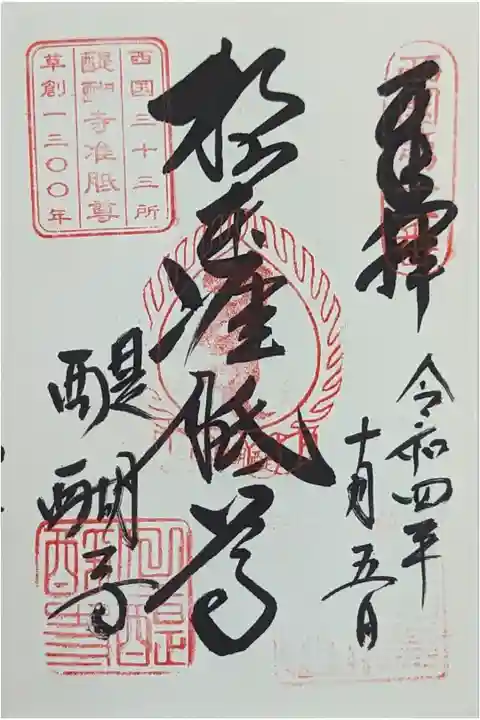 奉拝
令和四年
十月五日
准胝尊
醍醐寺
西国三十三所
醍醐寺准胝尊
草創一三〇〇年